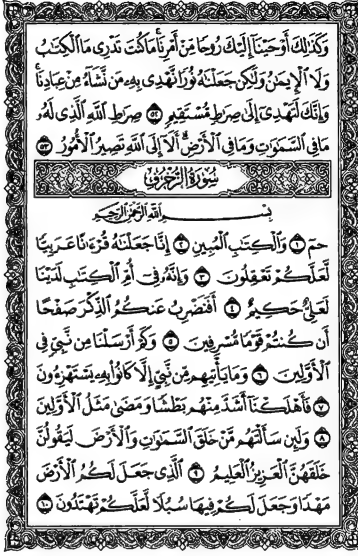 وَكَذَٰلِكَ أَوْحَيْنَآ إِلَيْكَ رُوحًا مِّنْ أَمْرِنَا مَا كُنتَ تَدْرِى مَا ٱلْكِتَٰبُ
وَلَا ٱلْإِيمَٰنُ وَلَٰكِن جَعَلْنَٰهُ نُورًا نَّهْدِى بِهِۦ مَن نَّشَآءُ مِنْ عِبَادِنَا
وَإِنَّكَ لَتَهْدِىٓ إِلَىٰ صِرَٰطٍ مُّسْتَقِيمٍ ٥٢ صِرَٰطِ ٱللَّهِ ٱلَّذِى لَهُۥ
مَا فِى ٱلسَّمَٰوَٰتِ وَمَا فِى ٱلْأَرْضِ أَلَآ إِلَى ٱللَّهِ تَصِيرُ ٱلْأُمُورُ ٥٣
سُورَةُ ٱلزُّخْرُفِ
بِسْمِ ٱللَّهِ ٱلرَّحْمَٰنِ ٱلرَّحِيمِ
حمٓ ١ وَٱلْكِتَٰبِ ٱلْمُبِينِ ٢ إِنَّا جَعَلْنَٰهُ قُرْءَٰنًا عَرَبِيًّا
لَّعَلَّكُمْ تَعْقِلُونَ ٣ وَإِنَّهُۥ فِىٓ أُمِّ ٱلْكِتَٰبِ لَدَيْنَا
لَعَلِىٌّ حَكِيمٌ ٤ أَفَنَضْرِبُ عَنكُمُ ٱلذِّكْرَ صَفْحًا
أَن كُنتُمْ قَوْمًا مُّسْرِفِينَ ٥ وَكَمْ أَرْسَلْنَا مِن نَّبِىٍّ فِى
ٱلْأَوَّلِينَ ٦ وَمَا يَأْتِيهِم مِّن نَّبِىٍّ إِلَّا كَانُوا۟ بِهِۦ يَسْتَهْزِءُونَ
٧ فَأَهْلَكْنَآ أَشَدَّ مِنْهُم بَطْشًا وَمَضَىٰ مَثَلُ ٱلْأَوَّلِينَ
٨ وَلَئِن سَأَلْتَهُم مَّنْ خَلَقَ ٱلسَّمَٰوَٰتِ وَٱلْأَرْضَ لَيَقُولُنَّ
خَلَقَهُنَّ ٱلْعَزِيزُ ٱلْعَلِيمُ ٩ ٱلَّذِى جَعَلَ لَكُمُ ٱلْأَرْضَ
مَهْدًا وَجَعَلَ لَكُمْ فِيهَا سُبُلًا لَّعَلَّكُمْ تَهْتَدُونَ ١٠